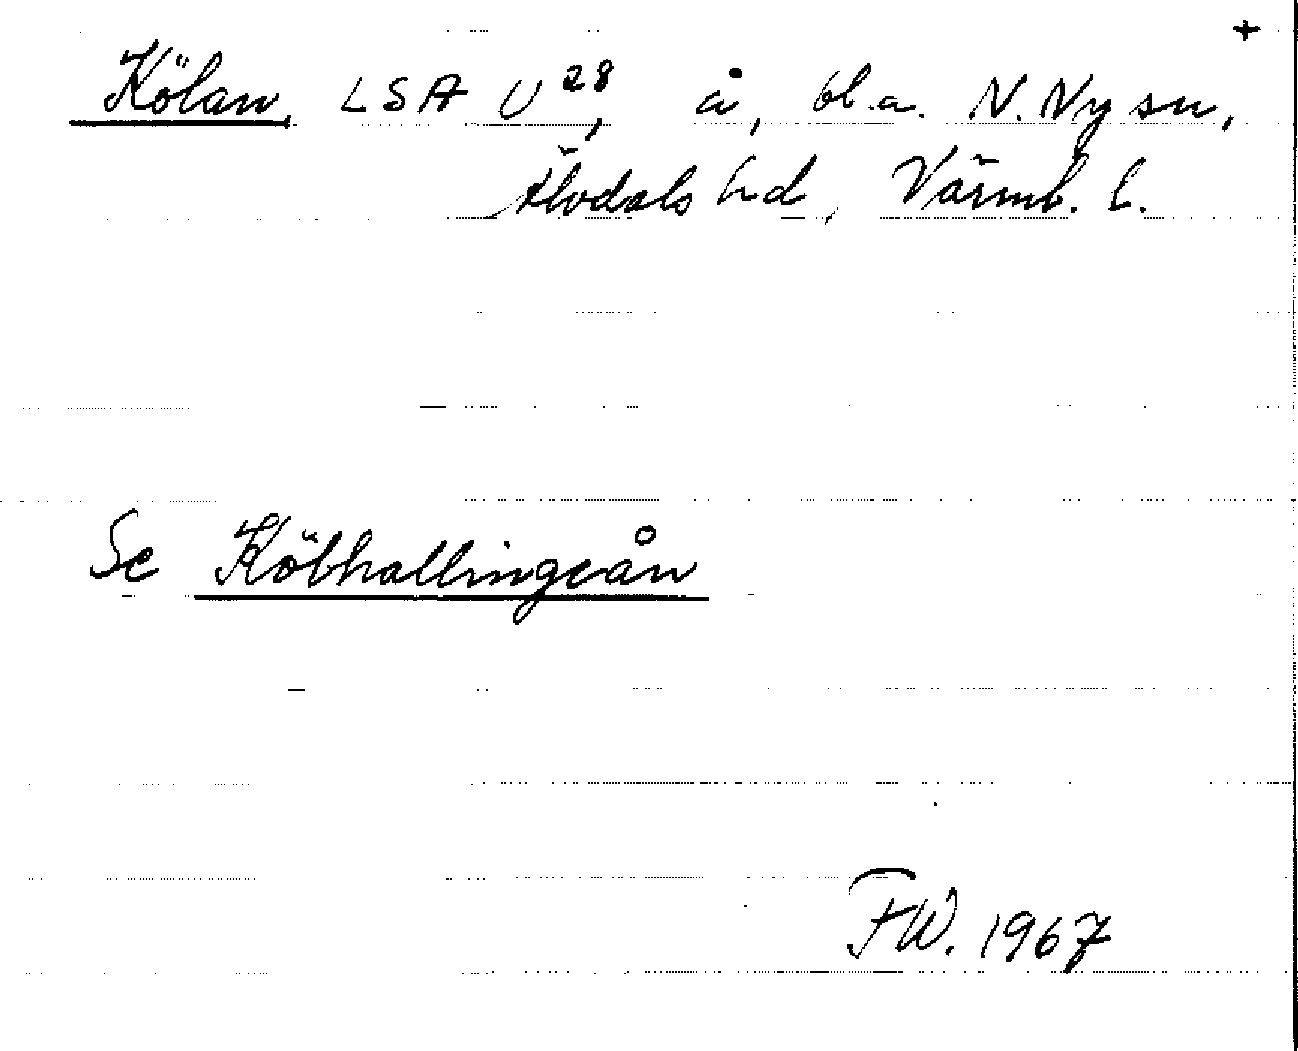 +
Kölan, LSA U 28, å, bl.a. N. Ny sn,
Älvdals hd, Värml. l.
Se Kölhallingeån
FW. 1967